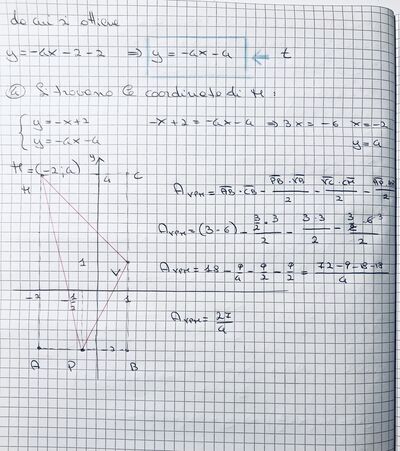 da cui si ottiene
y=-4x-2-2 ⇒ y=-4x-4 ← t
④ Si trovano le coordinate di H:
{ y=-x+2
{ y=-4x-4
-x+2=-4x-4 ⇒ 3x=-6 x=-2
y=4
H=(-2;4)
y
4
C
H
A_VPH = AB·CB - PB·VB/2 - VC·CH/2 -
A_VPH = (3·6) - (3/2·3)/2 - (3·3)/2 - (3/2·6 3)/2
1
V
A_VPH = 18 - 9/4 - 9/2 - 9/2 = (72-9-18-18)/4
-2
-1/2
1
A_VPH = 27/4
-2
A
P
B